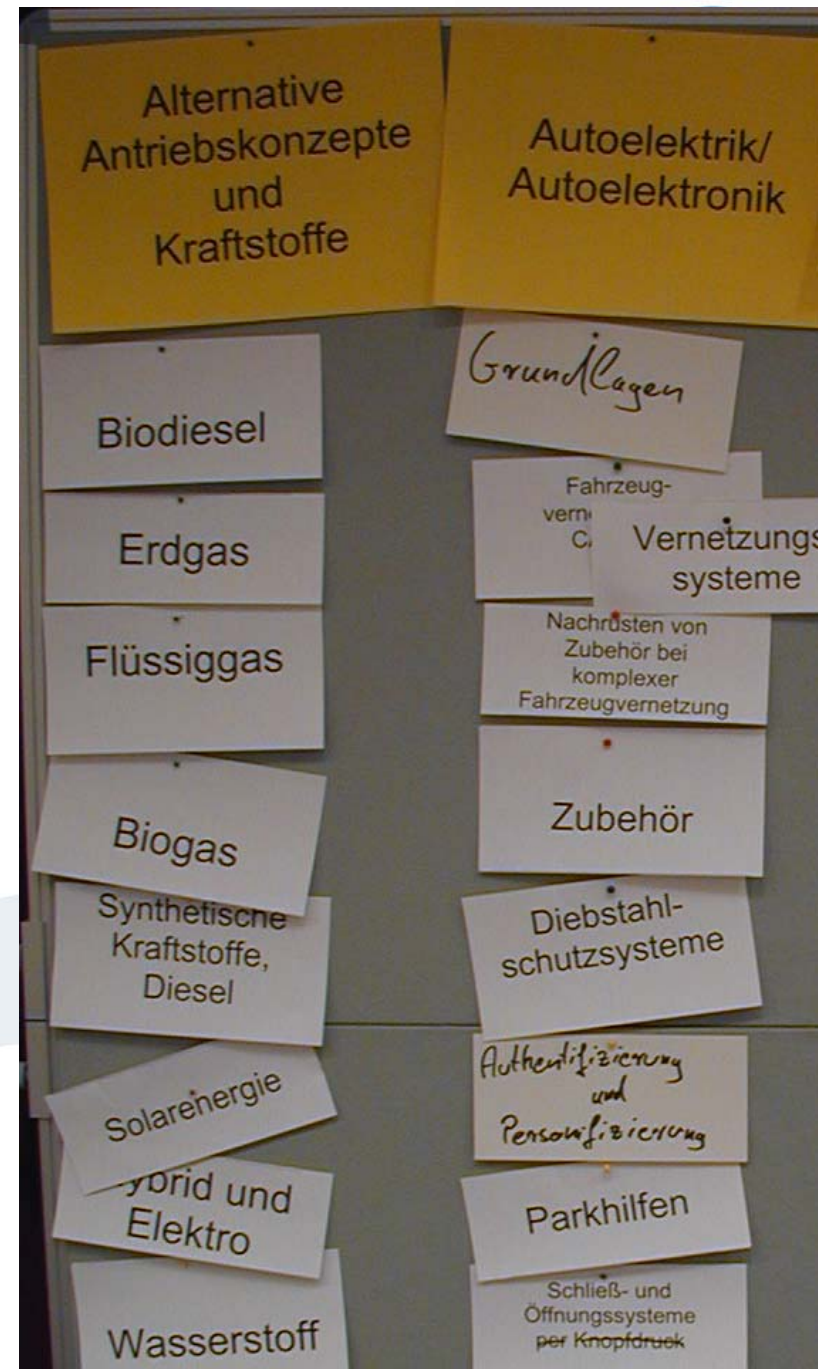 Alternative
Antriebskonzepte
und
Kraftstoffe
Biodiesel
Erdgas
Flüssiggas
Biogas
Synthetische
Kraftstoffe,
Diesel
Solarenergie
und
Elektro
Wasserstoff
Autoelektrik/
Autoelektronik
Grundlagen
Fahrzeug-
Vernetzungs
systeme
Nachrüsten von
Zubehör bei
komplexer
Fahrzeugvernetzung
Zubehör
Diebstahl-
schutzsysteme
Authentifizierung
und
Personifizierung
Parkhilfen
Schließ- und
Öffnungssysteme
per Knopfdruck